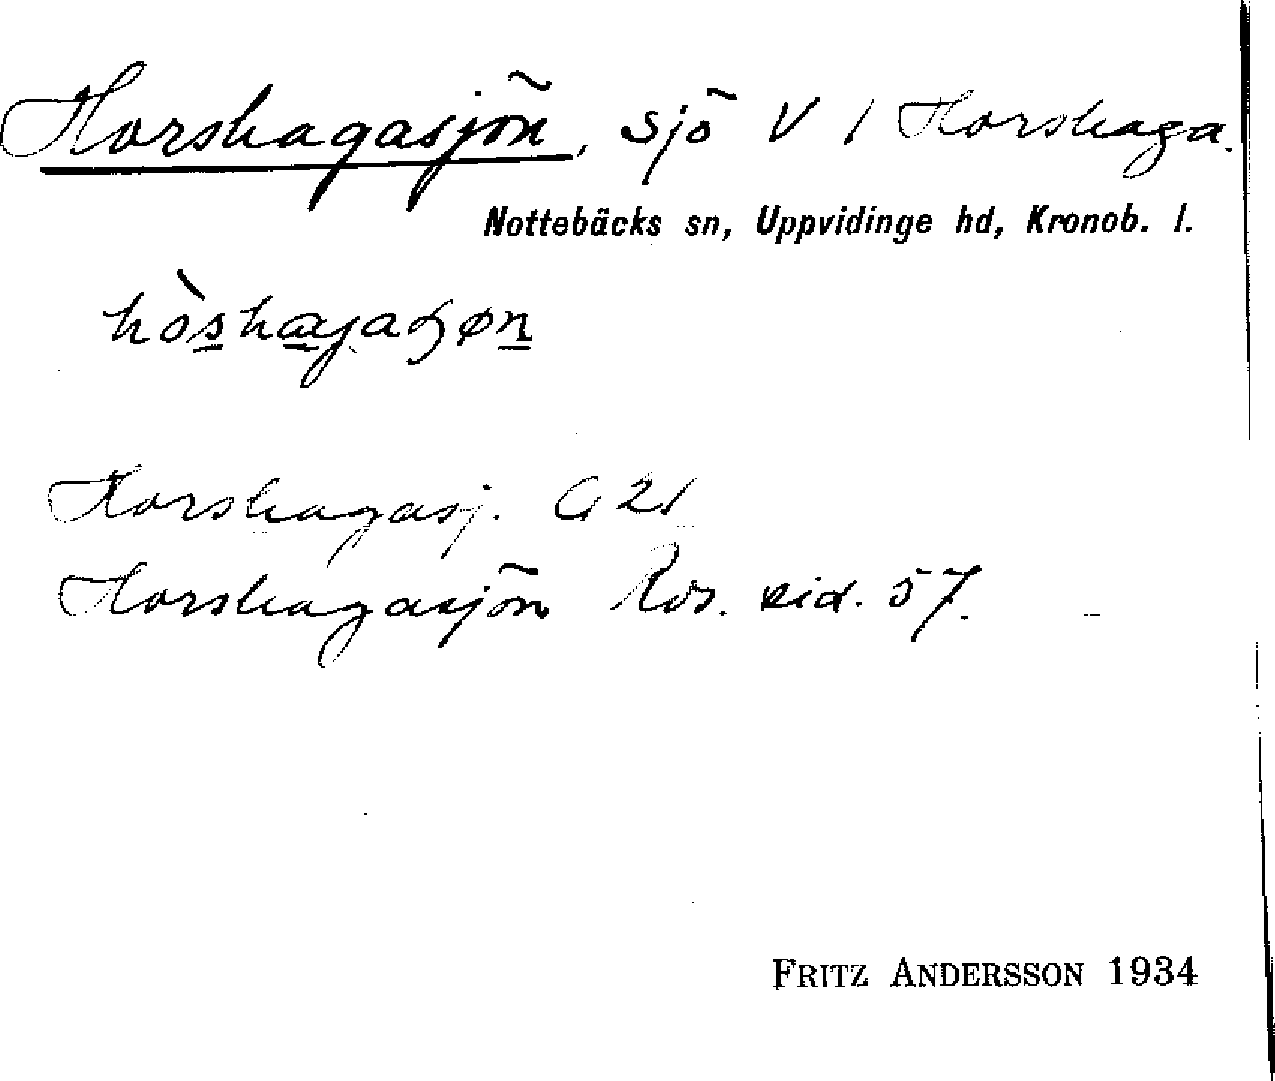 Horshagasjön, sjö V / Horshaga.
Nottebäcks sn, Uppvidinge hd, Kronob. l.
Horshagasj. G 21
Horshagasjön Ros. eid. 57.
FRITZ ANDERSSON 1934